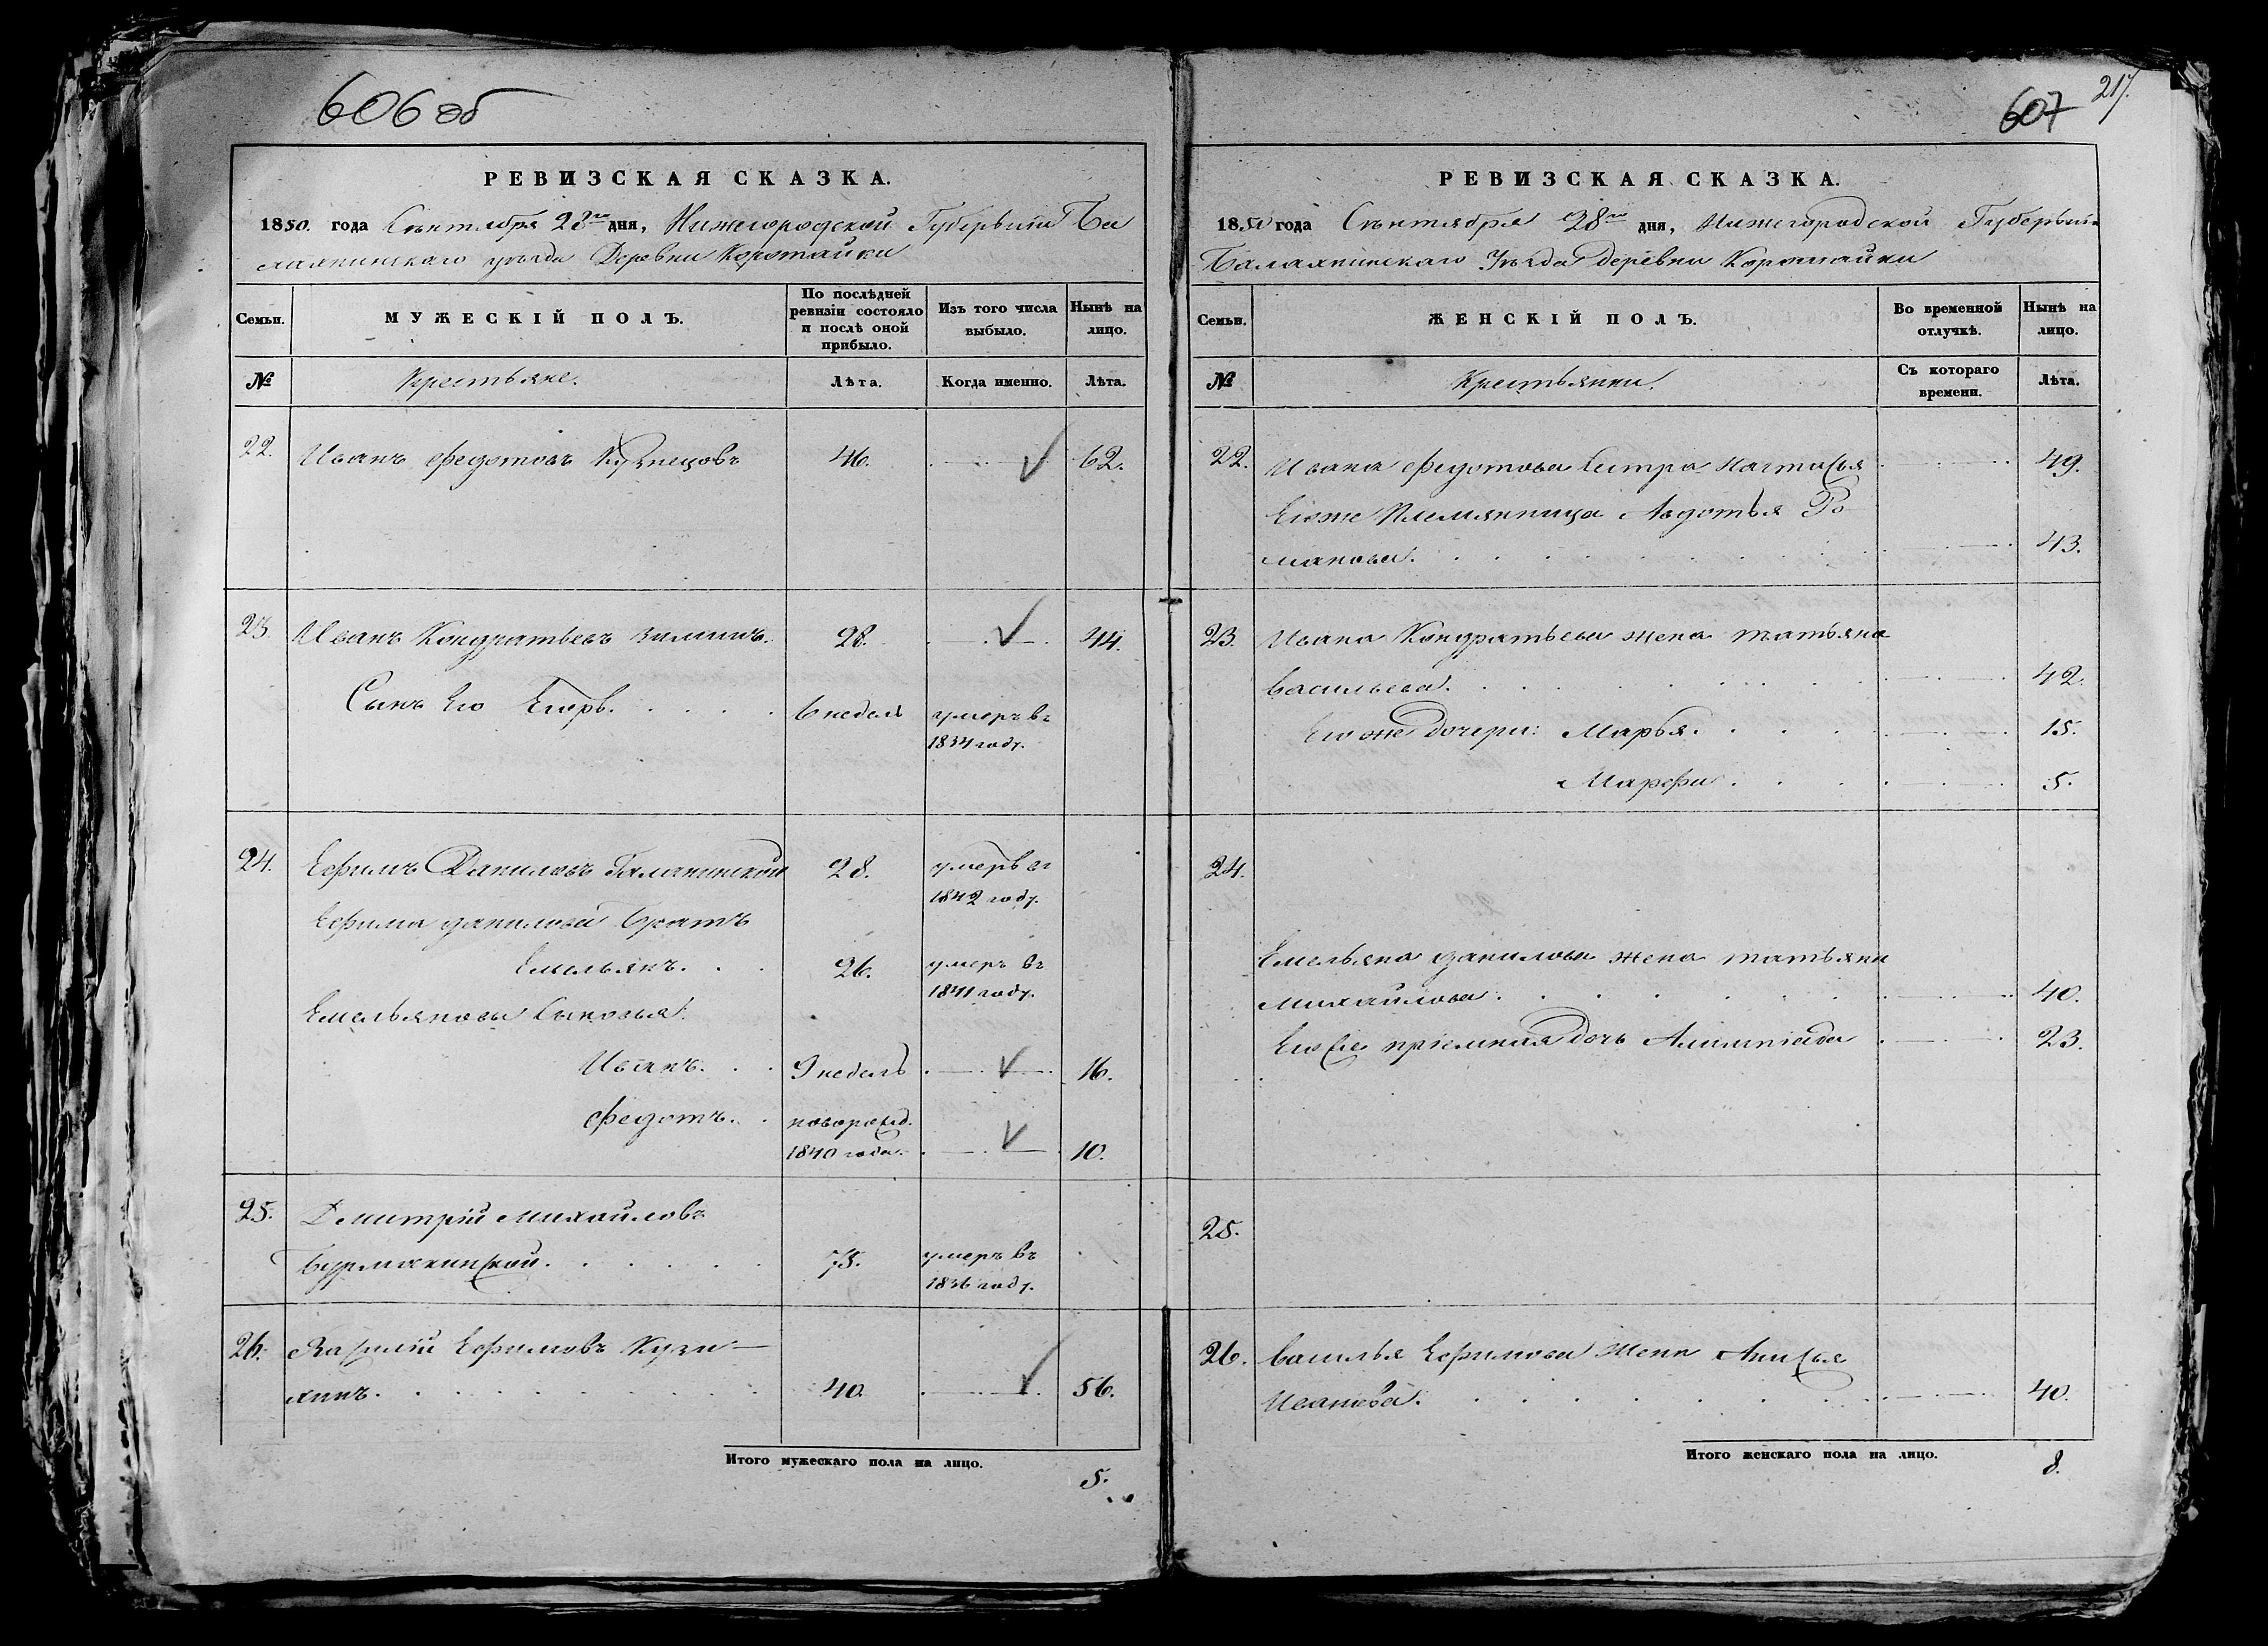 606 об
РЕВИЗСКАЯ СКАЗКА.
1850. года Сентября 28го дня, Нижегородской Губернiи Ба
лахнинскаго уѣзда Деревни Коротайки
Семьи.
МУЖЕСКІЙ ПОЛЪ.
По послѣдней ревизіи состояло и послѣ оной прибыло.
Изъ того числа выбыло.
Нынѣ на лицо.
№
Крестьяне.
Лѣта.
Когда именно.
Лѣта.
22. Иванъ Федотовъ Кузнецовъ 46. 62.
23. Иванъ Кондратьевъ Зиминъ. 28. 44.
Сынъ Его Егоръ. 6 недель умеръ въ
1834 году.
24. Ефимъ Даниловъ 28. умеръ въ
1842 году.
Ефима Данилова братъ
Емельянъ. 26. умеръ въ
1841 году.
Емельяновы Сыновья:
Иванъ. 9 недель 16.
Федотъ. новорожд.
1840 года. 10.
25. Дмитрій Михайловъ
Бурмакинской. 75. умеръ въ
1836 году.
26. Василій Ефимовъ Кузи-
хинъ. 40. 56.
Итого мужескаго пола на лицо.
5.
607 217.
РЕВИЗСКАЯ СКАЗКА.
1850 года Сентября 28го дня, Нижегородской Губернiи
Балахнинскаго Уѣзда деревни Коротайки
Семьи.
ЖЕНСКІЙ ПОЛЪ.
Во временной отлучкѣ.
Нынѣ на лицо.
№
Крестьянки.
Съ котораго времени.
Лѣта.
22. Ивана Федотова Сестра Настасья 49.
Егоже Племянница Авдотья Ро
манова. 43.
23. Ивана Кондратьева жена татьяна
Васильева. 42.
Егоже дочери: Марья. 15.
Марефа. 5.
24.
Емельяна данилова жена татьяна
михайлова. 40.
пріемная дочь Алимпіада 23.
25.
26. Василья Ефимова жена Анисья
Иванова. 40.
Итого женскаго пола на лицо.
8.